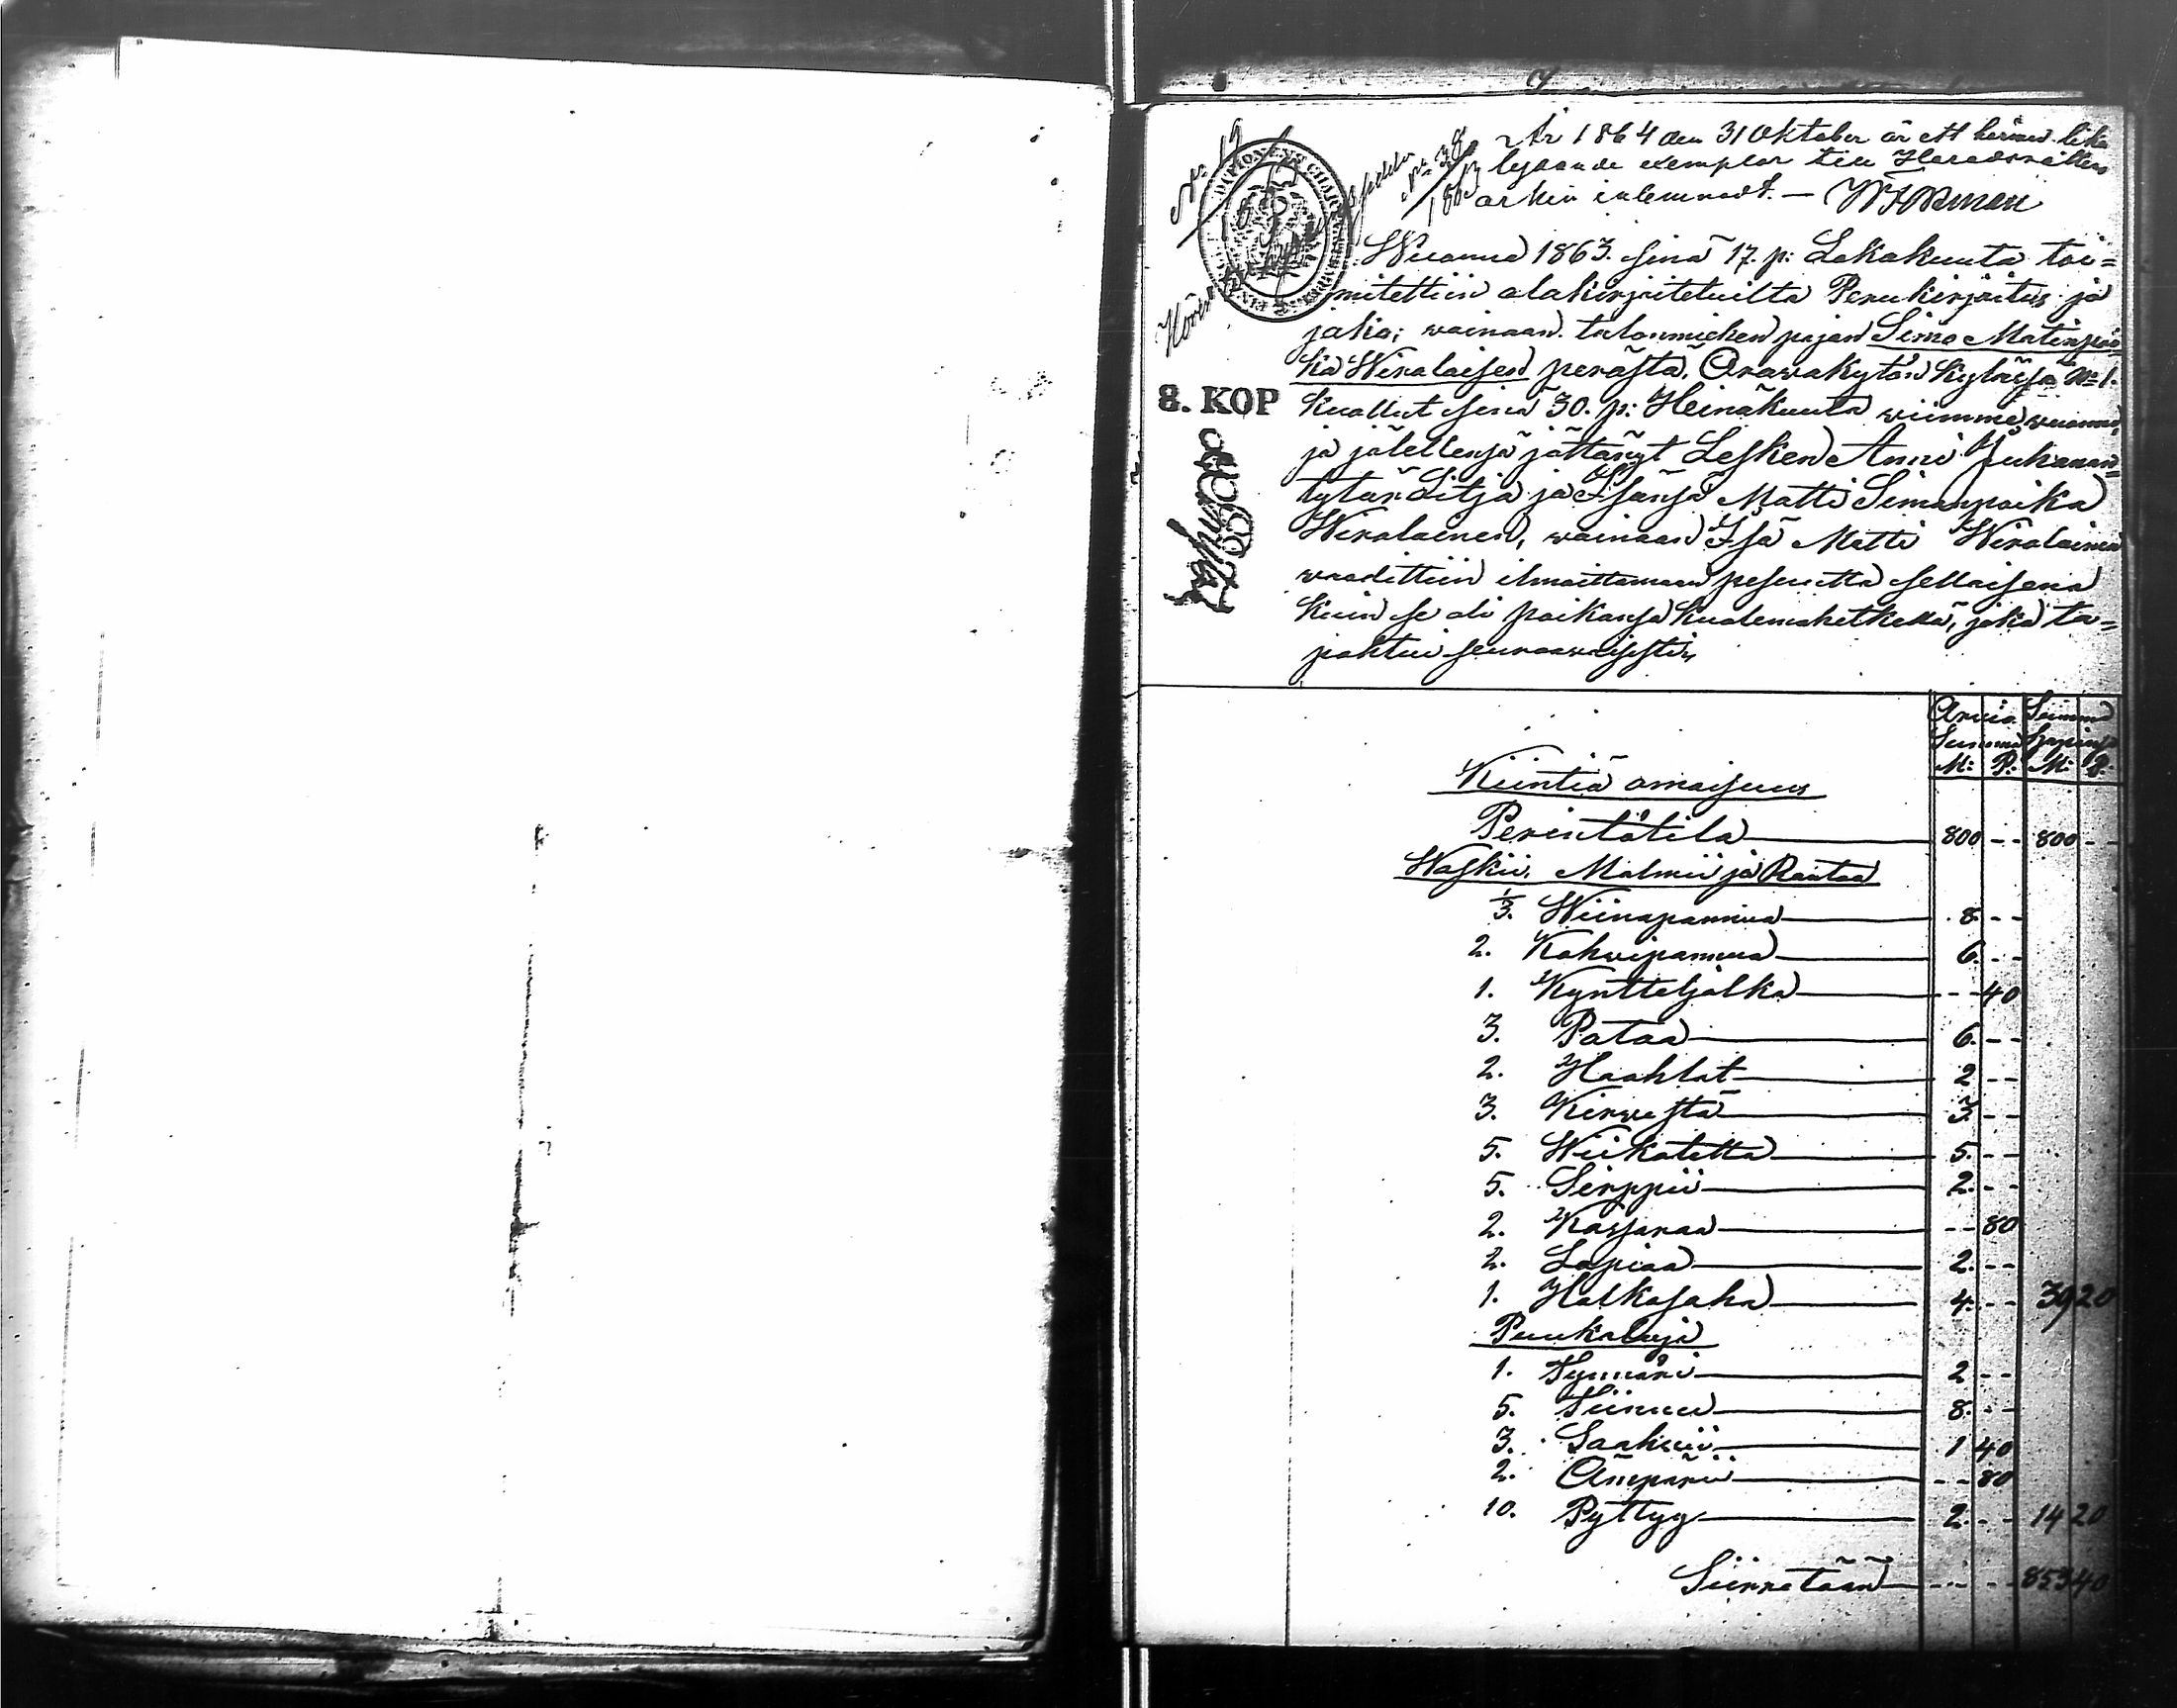 År 1864 den 31 Oktober är ett härmed lika
lydande exemplar till Häradsrättens
arkiv inlemnadt. —
No 19
No 38
1863
8. KOP
Wuonna 1863. sinä 17. p: Lokakuuta toi=
mitettiin alakirjoitetuilta Perukirjoitus ja
jako; wainaan talonmiehen pojan Simo Matinpoi=
ka Wirolaisen perästä, Orawakytön kylässä No 1.
kuollut sinä 30. p: Heinäkuuta wiimme wuonna,
ja jälellensä jättänyt Lesken Anni Juhanan=
tytär ja Matti Simonpoika
Wirolainen, wainaan Isä Matti Wirolainen
waadittiin ilmoittamaan pesuutta sellaisena
kuin se oli poikansa kuolemahetkellä, joka ta=
pahtui seuraawaisesti,
Arwio Summa
Summa
M: P: M: P:
Kiintiä omaisuus
Perintötila 800 - - 800 - -
Waskii, Malmii ja Rautaa
1/3. Wiinapannua 8 - -
2. Kahwipannua 6 - -
1. Kyntteljalka - - 40
3. Pataa 6. - -
2. Haahlat 2 - -
3. Kirwestä 3 - -
5. Wiikatetta 5. - -
5. Sirppii 2. - -
2. Kassaraa - - 80
2. Lapiaa 2. - -
1. Halkosaha 4. - - 39 20
Puukaluja
1. Tynnöri 2 - -
5. Tiinuu 8. - -
3. Saahwii 1 40
2. Ämpärii - - 80
10. Pyttyy 2. - - 14 20
Siirretään - - - - 853 40